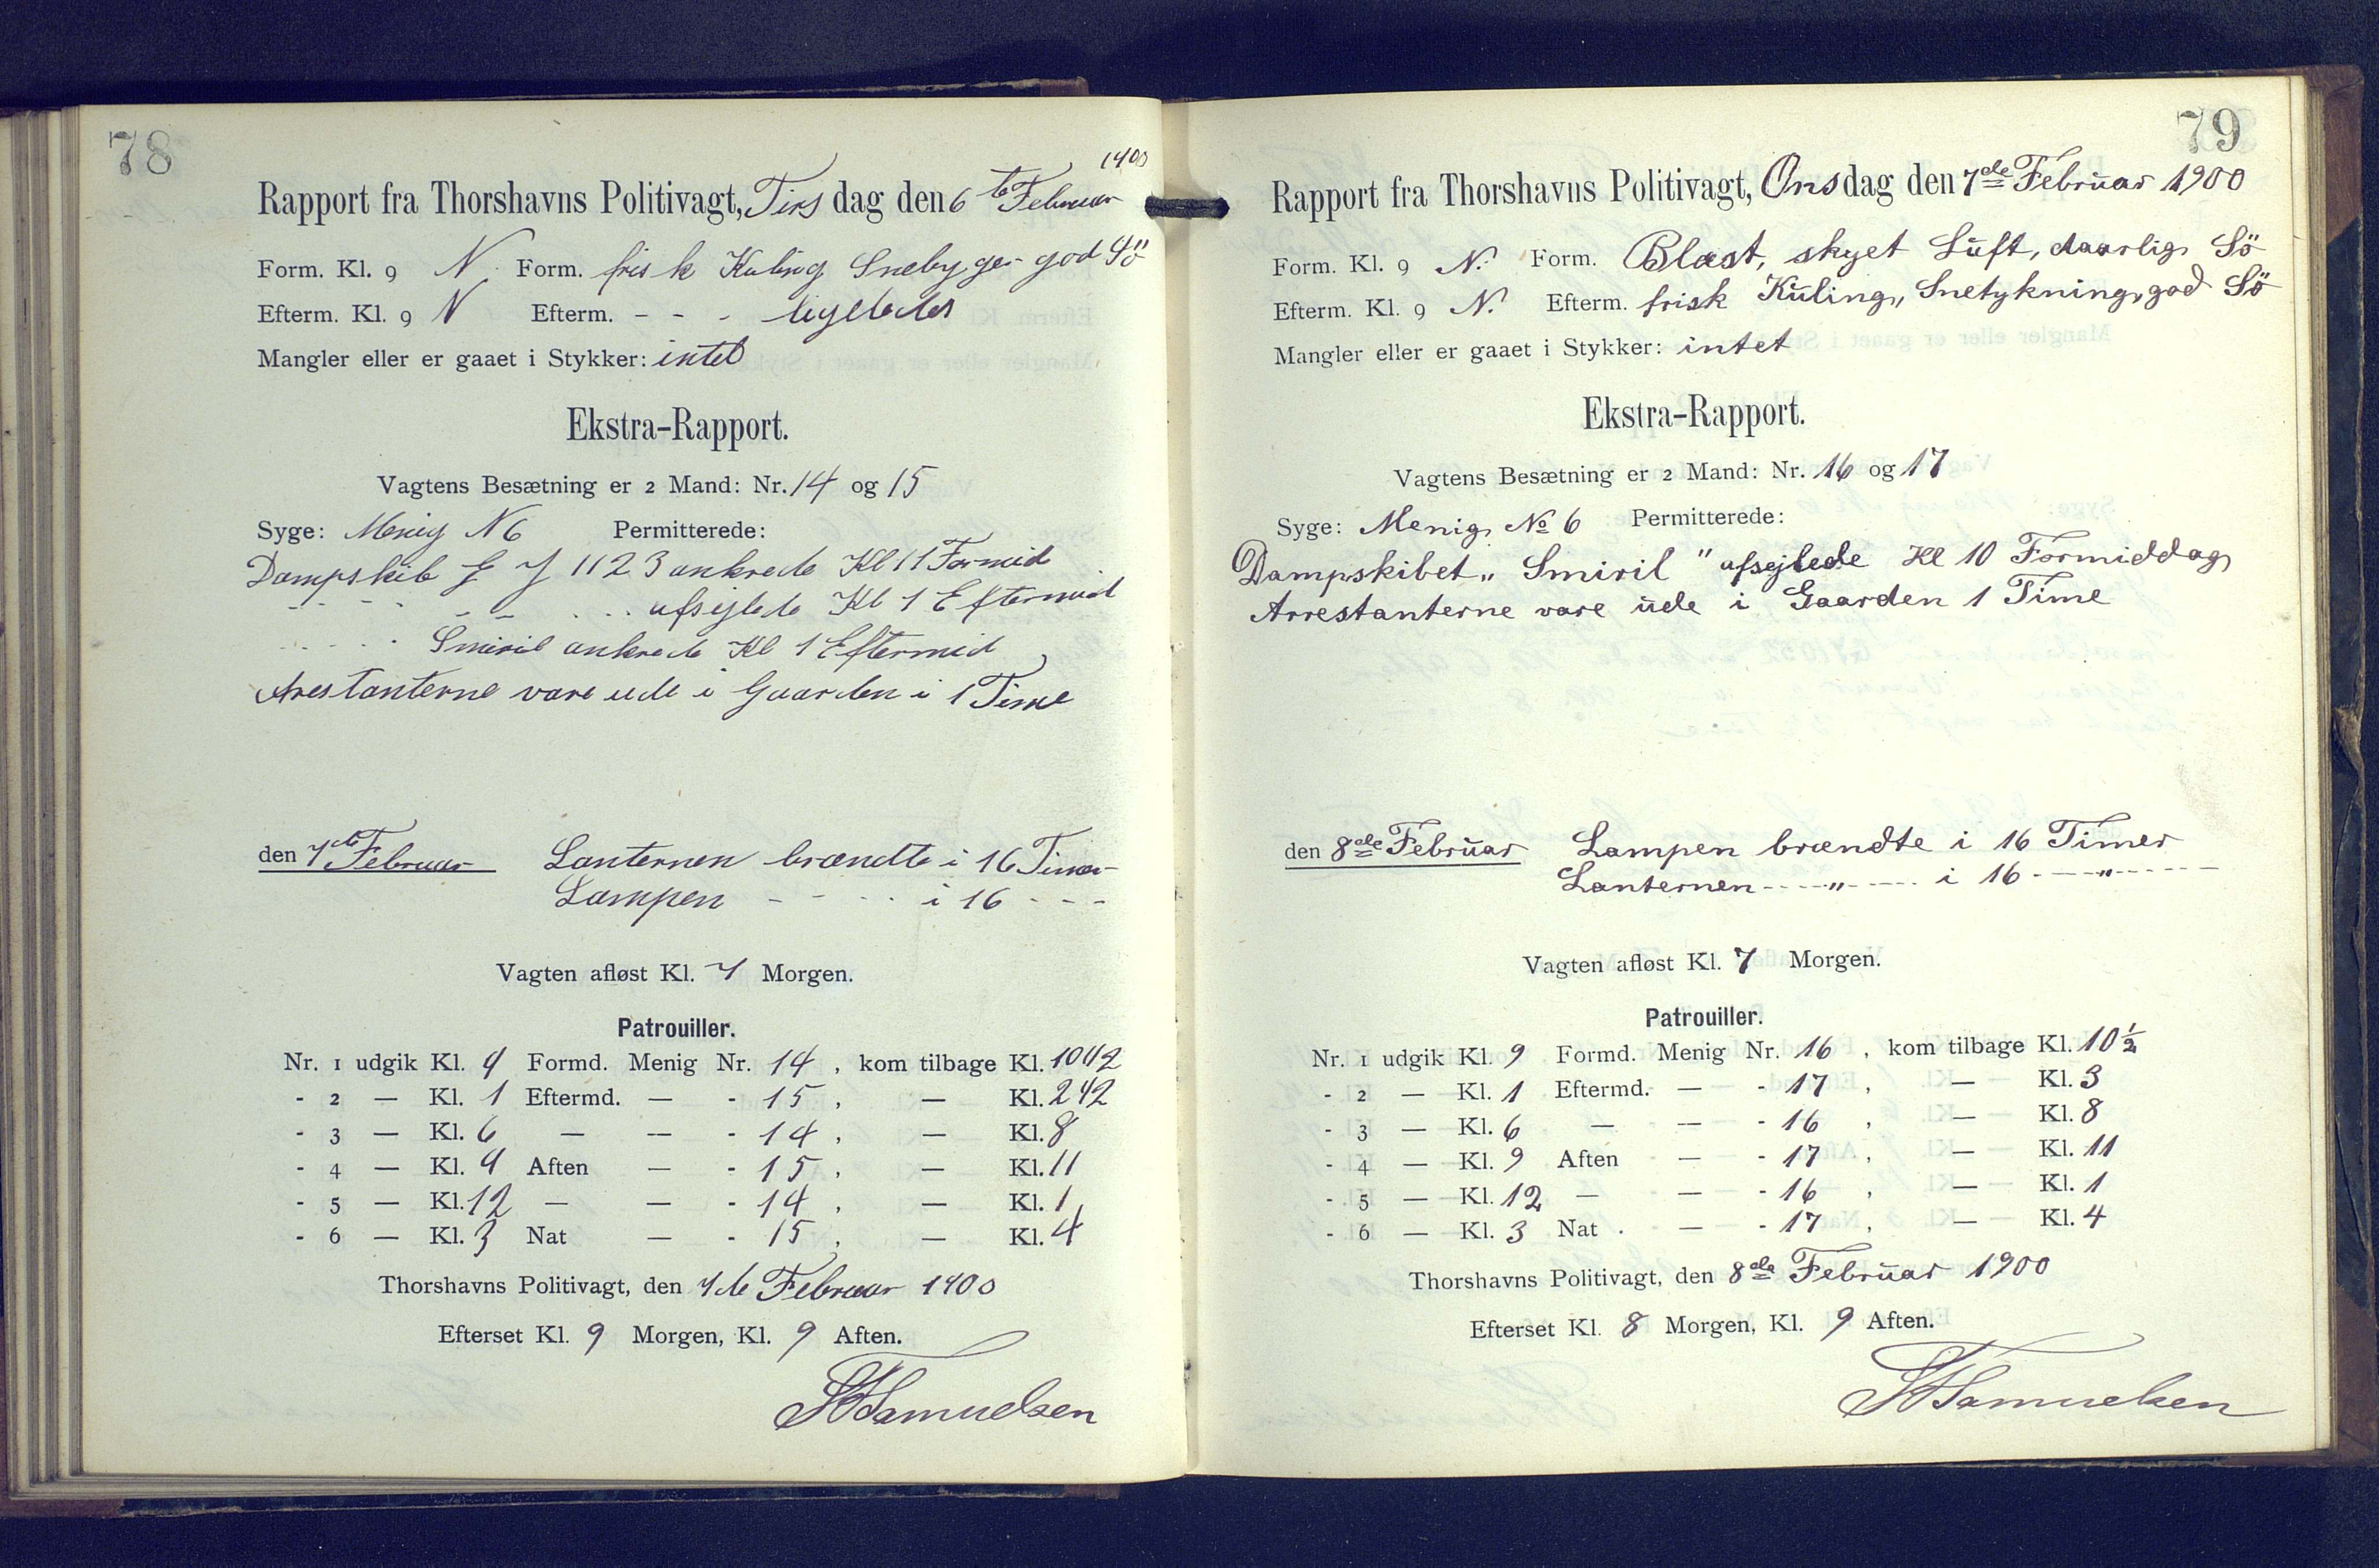 78
1900
Rapport fra Thorshavns Politivagt, Tirsdag den 6te Februar
Form. Kl. 9 N Form. frisk Kuling Snebyger god Sö
Efterm. Kl. 9 N Efterm. - - - ligeledes
Mangler eller er gaaet i Stykker: intet
Ekstra-Rapport.
Vagtens Besætning er 2 Mand: Nr. 14 og 15
Syge: Menig N 6 Permitterede:
Dampskib 1123 ankrede Kl 11 Formid
- - - - - - - afsejlede Kl 1 Eftermid
- - - - Smiril ankrede Kl 1 Eftermid
Arestanterne vare ude i Gaarden i 1 Time
den 7de Februar Lanternen brændte i 16 Timer
Lampen - - - - i 16 - - -
Vagten afløst Kl. 7 Morgen.
Patrouiller.
Nr. 1 udgik Kl. 9 Formd. Menig Nr. 14, kom tilbage Kl. 10 1/2
- 2 — Kl. 1 Eftermd. — - 15, — Kl. 2 1/2
- 3 — Kl. 6 — — - 14, — Kl. 8
- 4 — Kl. 9 Aften — - 15, — Kl. 11
- 5 — Kl. 12 — — - 14, — Kl. 1
- 6 — Kl. 3 Nat — - 15, — Kl. 4
Thorshavns Politivagt, den 7de Februar 1900
Efterset Kl. 9 Morgen, Kl. 9 Aften.
Samuelsen
79
Rapport fra Thorshavns Politivagt, Onsdag den 7de Februar 1900
Form. Kl. 9 N. Form. Blæst, skyet Luft, daarlig Sö
Efterm. Kl. 9 N. Efterm. frisk Kuling, Snetykning, god Sö
Mangler eller er gaaet i Stykker: intet
Ekstra-Rapport.
Vagtens Besætning er 2 Mand: Nr. 16 og 17
Syge: Menig No 6 Permitterede:
Dampskibet „Smiril" afsejlede Kl 10 Formiddag
Arrestanterne vare ude i Gaarden 1 Time
den 8de Februar Lampen brændte i 16 Timer
Lanternen - - - „ - - - i 16 - - „ - - -
Vagten afløst Kl. 7 Morgen.
Patrouiller.
Nr. 1 udgik Kl. 9 Formd. Menig Nr. 16, kom tilbage Kl. 10 1/2
- 2 — Kl. 1 Eftermd. — - 17, — Kl. 3
- 3 — Kl. 6 — — - 16, — Kl. 8
- 4 — Kl. 9 Aften — - 17, — Kl. 11
- 5 — Kl. 12 — — - 16, — Kl. 1
- 6 — Kl. 3 Nat — - 17, — Kl. 4
Thorshavns Politivagt, den 8de Februar 1900
Efterset Kl. 8 Morgen, Kl. 9 Aften.
Samuelsen